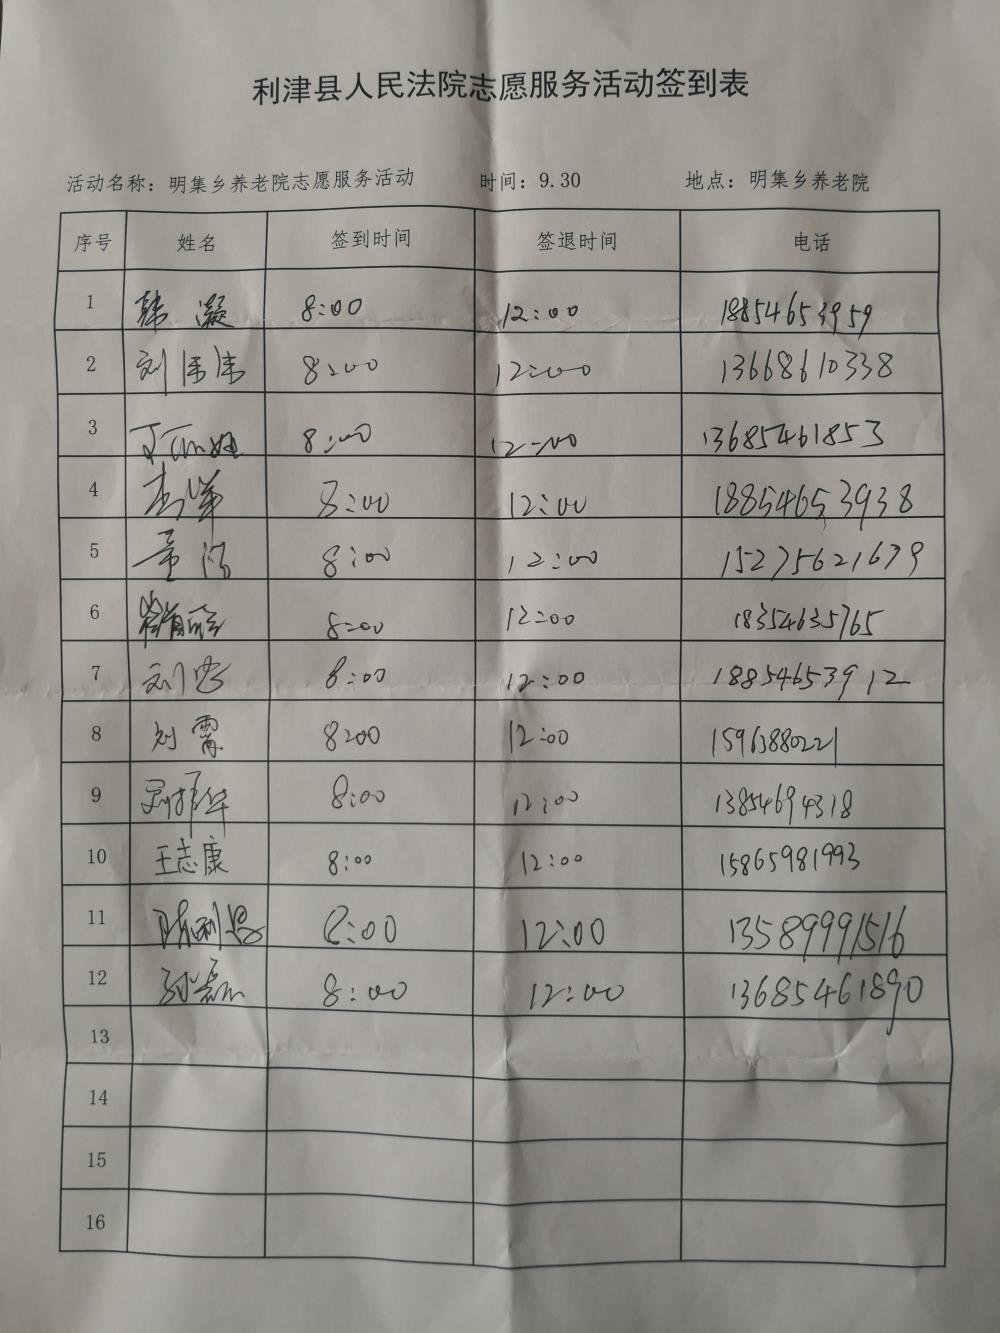 利津县人民法院志愿服务活动签到表
活动名称：明集乡养老院志愿服务活动 时间：9.30 地点：明集乡养老院
序号 姓名 签到时间 签退时间 电话
1 韩凝 8:00 12:00 18854653959
2 刘 8:00 12:00 13668610338
3 8:00 12:00 13685461853
4 8:00 12:00 18854653938
5 董 8:00 12:00 15275621679
6 8:00 12:00 18354635765
7 刘 8:00 12:00 18854653912
8 刘霄 8:00 12:00 15963880221
9 8:00 12:00 13854694318
10 王志康 8:00 12:00 15865981993
11 陈 8:00 12:00 13589991516
12 孙磊 8:00 12:00 13685461890
13
14
15
16